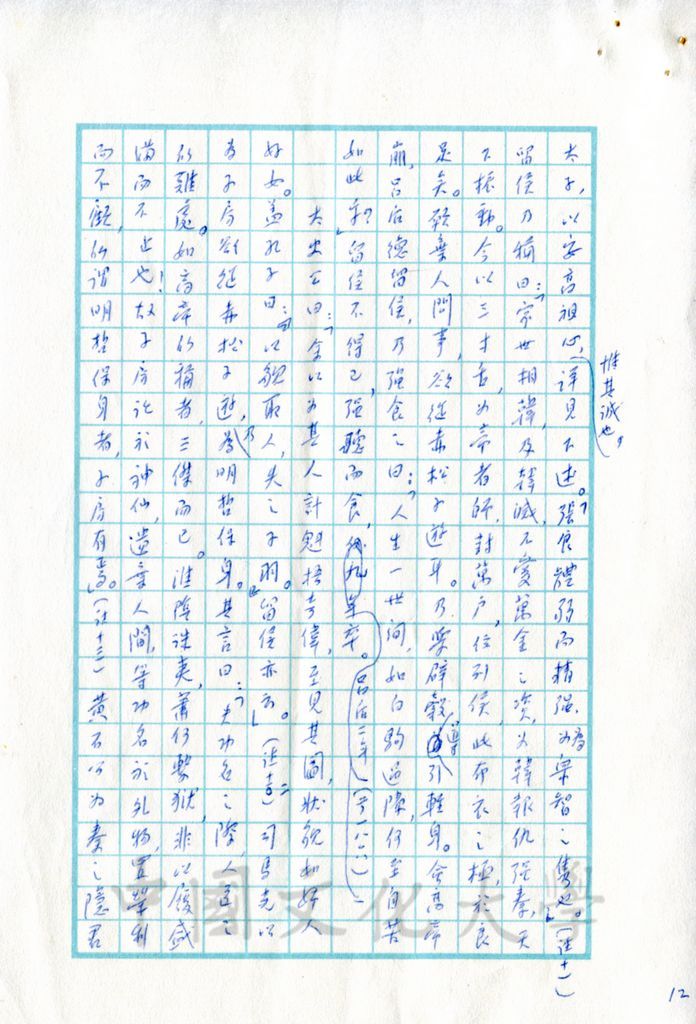 太子，以安高祖心，詳見下述。張良體弱而精強，為眾智之雋也。（註十一）
惟其誠也，
留侯乃稱曰：「家世相韓，及韓滅，不愛萬金之資，為韓報仇強秦，天
下振動。今以三寸舌，為帝者師，封萬戶，位列侯，此布衣之極，於良
足矣。願棄人間事，欲從赤松子遊耳。乃學辟穀導引輕身。會高帝
崩，呂后德留侯，乃強食之曰：「人生一世間，如白駒過隙，何至自苦
如此乎？」留侯不得已，強聽而食，九年卒。呂后二年（前一八六）
太史公曰：「余以為其人計魁梧奇偉，至見其圖，狀貌如婦人
好女。蓋孔子曰：『以貌取人，失之子羽。』留侯亦云。」（註十二）司馬光以
為子房欲從赤松子遊，乃為明哲保身。其言曰：「夫功名之際，人臣之
所難處。如高帝所稱者，三傑而已。淮陰誅夷，蕭何繫獄，非以履盛
滿而不止也！故子房託於神仙，遺棄人間，等功名於外物，置榮利
而不顧，所謂明哲保身者，子房有焉。（註十三）黃石公為秦之隱君
12
中國文化大學